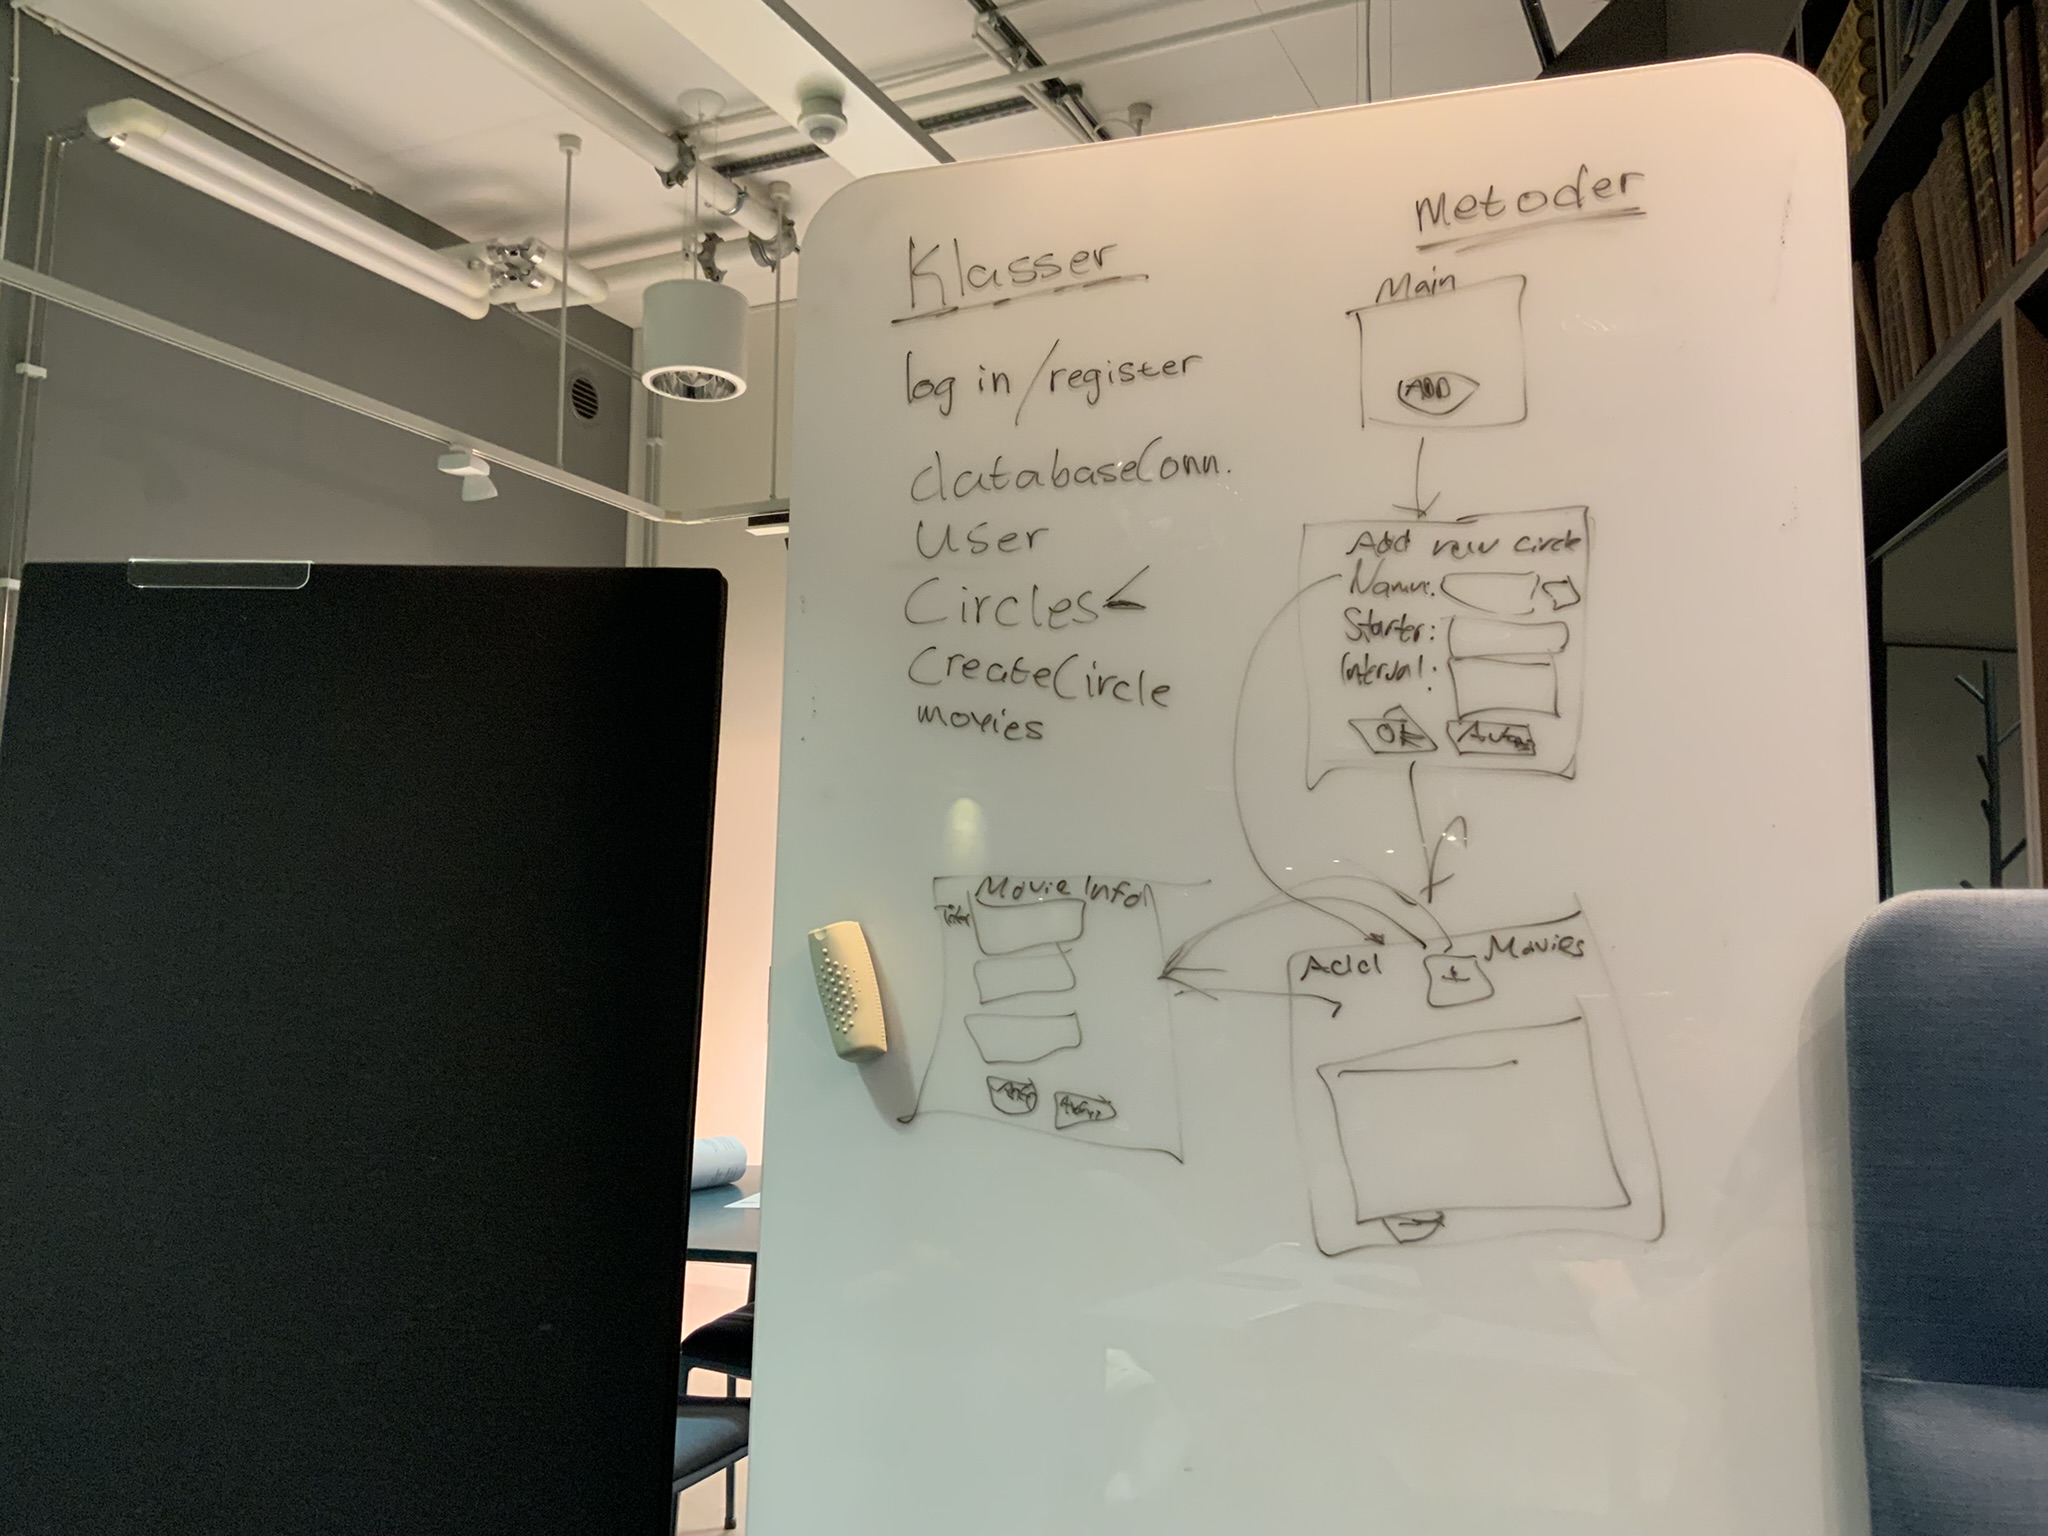 Klasser
log in / register
databaseConn.
User
Circles
CreateCircle
movies
Metoder
Main
ADD
Add new circle
Namn:
Starter:
Interval:
OK
Movie Info
Add + Movies